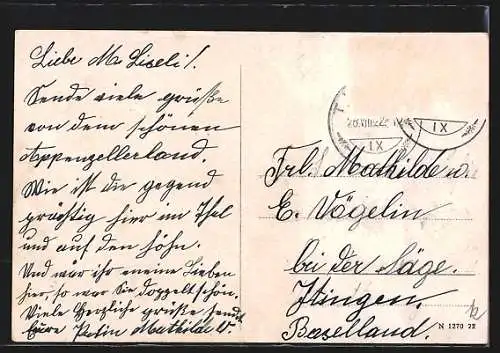 Liebe M. Liseli!
Sende viele grüße
von dem schönen
Appenzellerland.
Wie ist die gegend
prächtig hier im Thal
und auf den höhn.
Und wär ihr meine Lieben
hier, so wär Sie doppelt schön.
Viele Herzliche grüße sendt
Eure Mathilde V.
IX
IX
Frl. Mathilde u.
E. Vögelin
bei der Säge.
Itingen,
Baselland.
N 1270 22